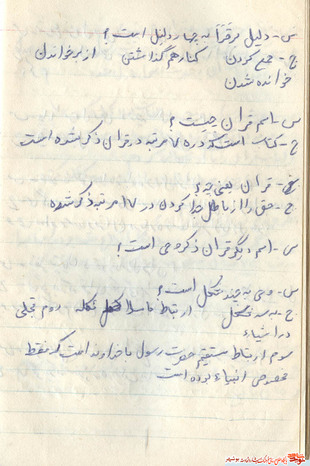 س - دلیل بر قرآن به چهار دلیل است؟
ج - جمع کردن کنار هم گذاشتن از بر خواندن
خوانده شدن
س - اسم قرآن چیست؟
ج - کتاب است که در ۷۵ مرتبه در قرآن ذکر شده است
قرآن یعنی چه؟
ج - حق را از باطل جدا کردن در ۱۷ مرتبه ذکر شده
س - اسم دیگر قرآن ذکر وحی است؟
س - وحی به چند شکل است؟
ج - به سه شکل ارتباط دوم تجلی
در اشیاء
سوم ارتباط مستقیم حضرت رسول با خداوند است که فقط
مخصوص انبیاء بوده است